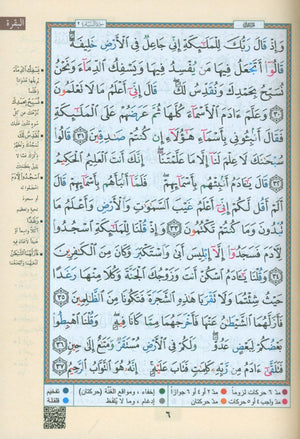 وَإِذْ قَالَ رَبُّكَ لِلْمَلَٰٓئِكَةِ إِنِّى جَاعِلٌ فِى ٱلْأَرْضِ خَلِيفَةً
قَالُوٓا۟ أَتَجْعَلُ فِيهَا مَن يُفْسِدُ فِيهَا وَيَسْفِكُ ٱلدِّمَآءَ وَنَحْنُ
نُسَبِّحُ بِحَمْدِكَ وَنُقَدِّسُ لَكَ قَالَ إِنِّىٓ أَعْلَمُ مَا لَا تَعْلَمُونَ
٣٠ وَعَلَّمَ ءَادَمَ ٱلْأَسْمَآءَ كُلَّهَا ثُمَّ عَرَضَهُمْ عَلَى ٱلْمَلَٰٓئِكَةِ
فَقَالَ أَنۢبِـُٔونِى بِأَسْمَآءِ هَٰٓؤُلَآءِ إِن كُنتُمْ صَٰدِقِينَ ٣١ قَالُوا۟
سُبْحَٰنَكَ لَا عِلْمَ لَنَآ إِلَّا مَا عَلَّمْتَنَآ إِنَّكَ أَنتَ ٱلْعَلِيمُ ٱلْحَكِيمُ
٣٢ قَالَ يَٰٓـَٔادَمُ أَنۢبِئْهُم بِأَسْمَآئِهِمْ فَلَمَّآ أَنۢبَأَهُم بِأَسْمَآئِهِمْ قَالَ
أَلَمْ أَقُل لَّكُمْ إِنِّىٓ أَعْلَمُ غَيْبَ ٱلسَّمَٰوَٰتِ وَٱلْأَرْضِ وَأَعْلَمُ مَا
تُبْدُونَ وَمَا كُنتُمْ تَكْتُمُونَ ٣٣ وَإِذْ قُلْنَا لِلْمَلَٰٓئِكَةِ ٱسْجُدُوا۟
لِءَادَمَ فَسَجَدُوٓا۟ إِلَّآ إِبْلِيسَ أَبَىٰ وَٱسْتَكْبَرَ وَكَانَ مِنَ ٱلْكَٰفِرِينَ
٣٤ وَقُلْنَا يَٰٓـَٔادَمُ ٱسْكُنْ أَنتَ وَزَوْجُكَ ٱلْجَنَّةَ وَكُلَا مِنْهَا رَغَدًا
حَيْثُ شِئْتُمَا وَلَا تَقْرَبَا هَٰذِهِ ٱلشَّجَرَةَ فَتَكُونَا مِنَ ٱلظَّٰلِمِينَ ٣٥
فَأَزَلَّهُمَا ٱلشَّيْطَٰنُ عَنْهَا فَأَخْرَجَهُمَا مِمَّا كَانَا فِيهِ وَقُلْنَا ٱهْبِطُوا۟
بَعْضُكُمْ لِبَعْضٍ عَدُوٌّ وَلَكُمْ فِى ٱلْأَرْضِ مُسْتَقَرٌّ وَمَتَٰعٌ إِلَىٰ حِينٍ
٣٦ فَتَلَقَّىٰٓ ءَادَمُ مِن رَّبِّهِۦ كَلِمَٰتٍ فَتَابَ عَلَيْهِ إِنَّهُۥ هُوَ ٱلتَّوَّابُ ٱلرَّحِيمُ ٣٧
البقرة
يَسْفِكُ الدِّمَاءَ
نُسَبِّحُ بِحَمْدِكَ
نُقَدِّسُ لَكَ
اسْجُدُوا لِآدَمَ
رَغَدًا
فَأَزَلَّهُمَا الشَّيْطَانُ
مدّ ٦ حركات لزوماً
مدّ ٢ أو ٤ أو ٦ جوازاً
إخفاء، ومواقع الغُنَّة (حركتان)
تفخيم
مدّ واجب ٤ أو ٥ حركات
مدّ حركتان
إدغام، وما لا يُلفظ
قلقلة
٦